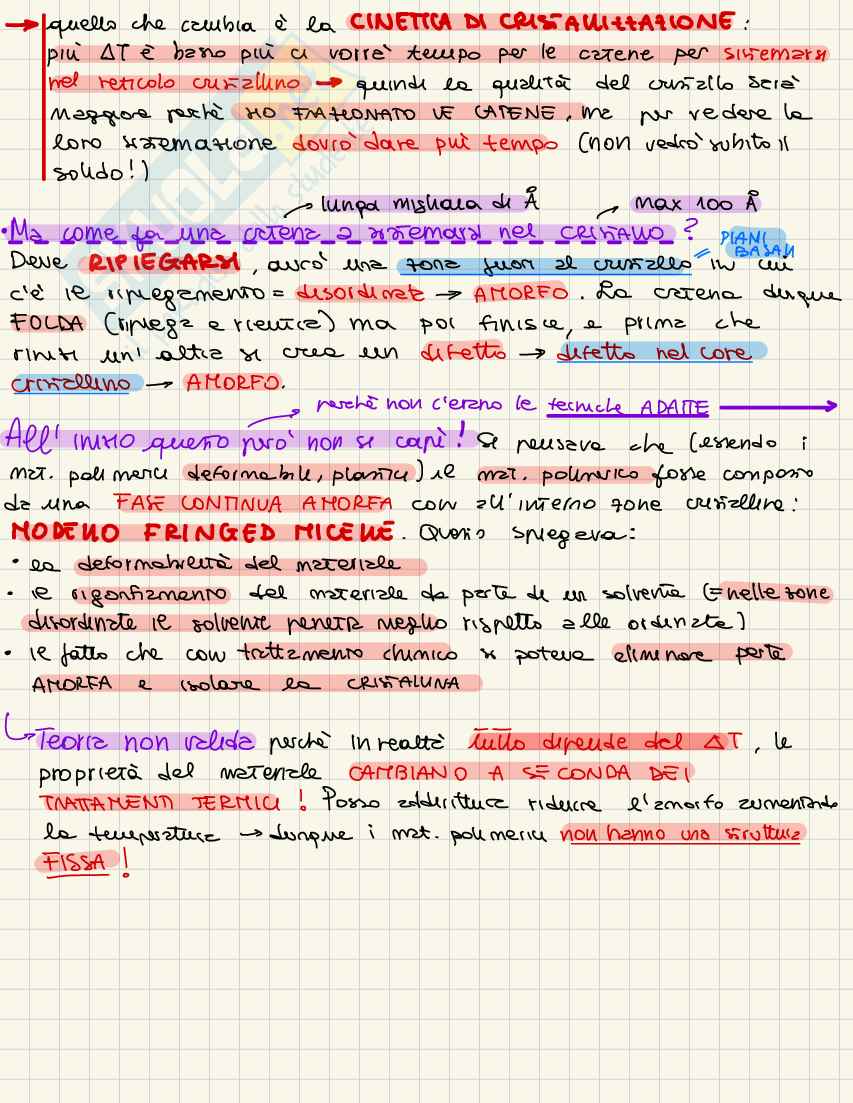 → quello che cambia è la CINETICA DI CRISTALLIZZAZIONE :
più ΔT è basso più ci vorrà tempo per le catene per sistemarsi
nel reticolo cristallino → quindi la qualità del cristallo sarà
maggiore perchè HO FRAZIONATO LE CATENE, ma per vedere la
loro sistemazione dovrò dare più tempo (non vedrò subito il
solido!)
lunga migliaia di Å
max 100 Å
• Ma come fa una catena a sistemarsi nel CRISTALLO ?
= PIANI
BASALI
Deve RIPIEGARSI, avrò una zona fuori al cristallo in cui
c'è il ripiegamento = disordinata → AMORFO. La catena dunque
FOLDA (ripiega e rientra) ma poi finisce, e prima che
rinizi un'altra si crea un difetto → difetto nel core
cristallino → AMORFO.
perchè non c'erano le tecniche ADATTE →
All'inizio questo però non si capì! Si pensava che (essendo i
mat. polimerici deformabili, plastici) il mat. polimerico fosse composto
da una FASE CONTINUA AMORFA con all'interno zone cristalline:
MODELLO FRINGED MICELLE. Questo spiegava:
• la deformabilità del materiale
• il rigonfiamento del materiale da parte di un solvente (= nelle zone
disordinate il solvente penetra meglio rispetto alle ordinate)
• il fatto che con trattamento chimico si poteva eliminare parte
AMORFA e isolare la CRISTALLINA
↳ Teoria non valida perchè in realtà tutto dipende dal ΔT, le
proprietà del materiale CAMBIANO A SECONDA DEI
TRATTAMENTI TERMICI ! Posso addirittura ridurre l'amorfo aumentando
la temperatura → dunque i mat. polimerici non hanno una struttura
FISSA!